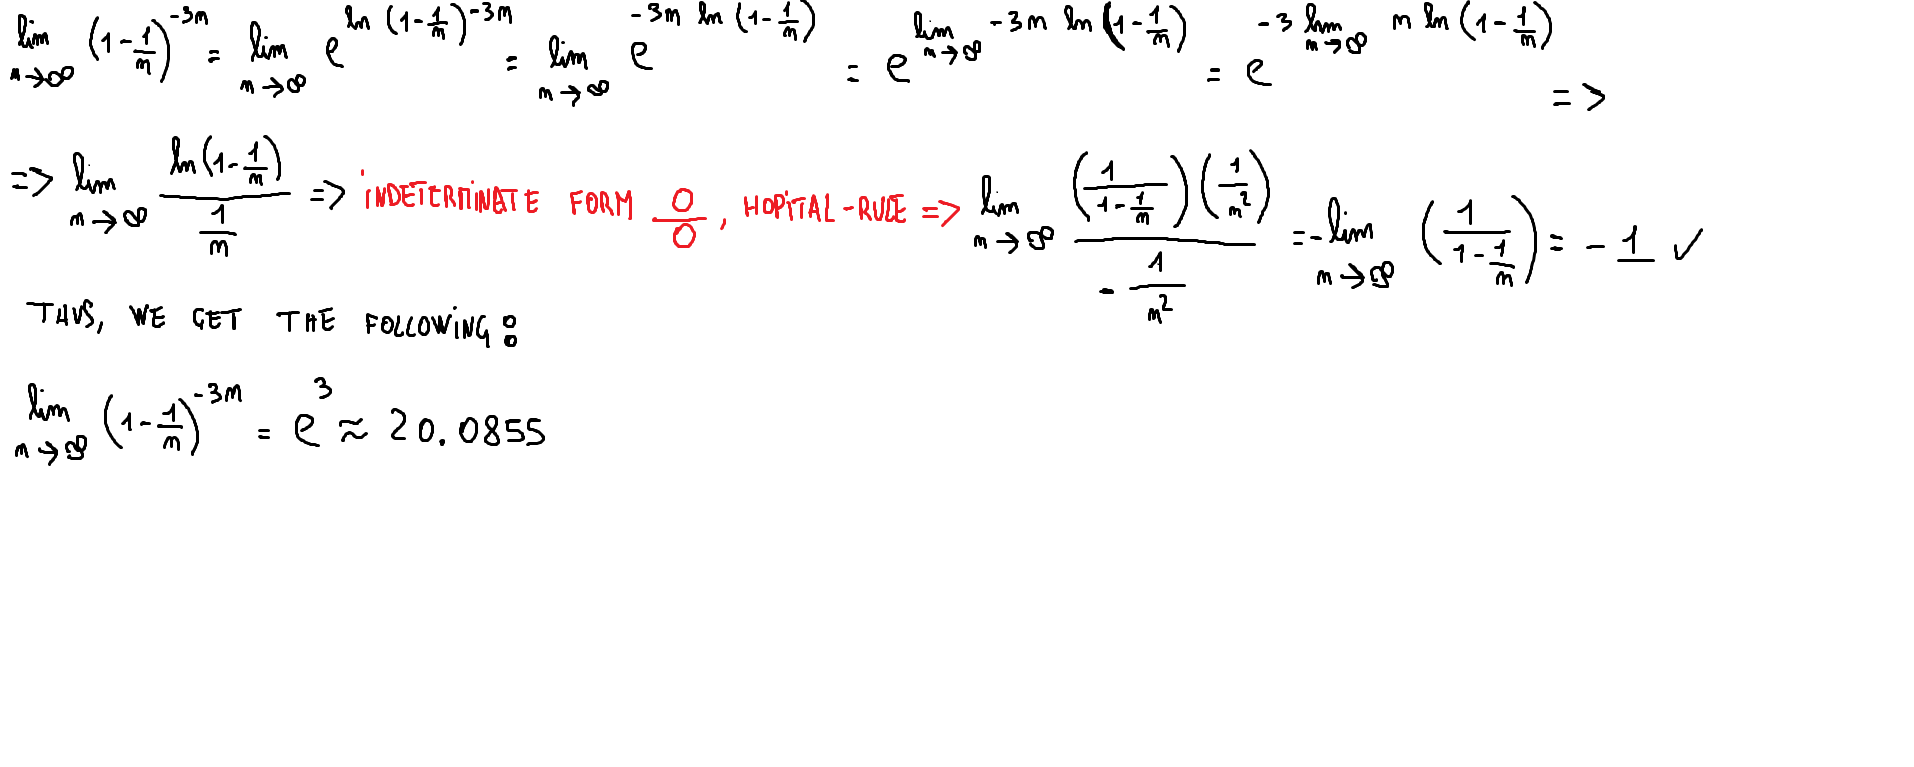 lim n→∞ (1 - 1/n)^(-3n) = lim n→∞ e^(ln (1 - 1/n)^(-3n)) = lim n→∞ e^(-3n ln (1 - 1/n)) = e^(lim n→∞ -3n ln (1 - 1/n)) = e^(-3 lim n→∞ n ln (1 - 1/n)) =>
=> lim n→∞ ln(1 - 1/n) / (1/n) => INDETERMINATE FORM 0/0, HOPITAL-RULE => lim n→∞ (1/(1 - 1/n)) (1/n²) / (- 1/n²) = - lim n→∞ (1/(1 - 1/n)) = - 1 ✓
THUS, WE GET THE FOLLOWING:
lim n→∞ (1 - 1/n)^(-3n) = e^3 ≈ 20.0855